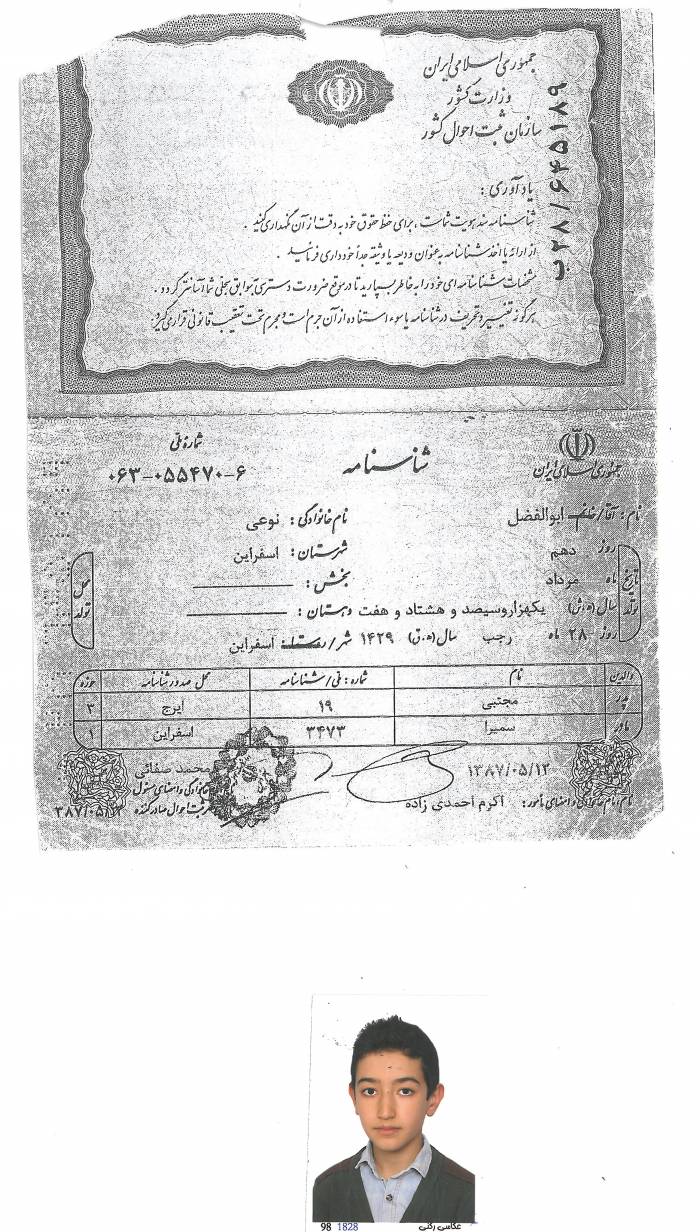 جمهوری اسلامی ایران
وزارت کشور
سازمان ثبت احوال کشور
ب۲۸/۶۴۵۱۸۹
یادآوری :
شناسنامه سند هویت شماست ، برای حفظ حقوق خود به دقت از آن نگهداری کنید .
از ارائه یا اخذ شناسنامه به عنوان ودیعه یا وثیقه جداً خودداری فرمائید .
مشخصات شناسنامه ای خود را به خاطر بسپارید تا در موقع ضرورت دسترسی به سوابق سجلی شما آسانتر گردد .
هرگونه تغییر و تحریف در شناسنامه یا سوء استفاده از آن جرم است و مجرم تحت تعقیب قانونی قرار می گیرد .
جمهوری اسلامی ایران
شناسنامه
شماره ملی
۰۶۳-۰۵۵۴۷۰-۶
نام : آقا/خانم ابوالفضل
نام خانوادگی : نوعی
تاریخ تولد
روز دهم
ماه مرداد
سال (ه.ش) یکهزار و سیصد و هشتاد و هفت
روز ۲۸ ماه رجب سال (ه.ق) ۱۴۲۹
محل تولد
شهرستان : اسفراین
بخش :
دهستان :
شهر/روستا : اسفراین
والدین نام شماره : ملی/شناسنامه محل صدور شناسنامه حوزه
پدر مجتبی ۱۹ ایرج ۳
مادر سمیرا ۳۴۷۳ اسفراین ۱
۱۳۸۷/۰۵/۱۲
نام، نام خانوادگی و امضای مأمور : اکرم احمدی زاده
محمد صفائی
خانوادگی و امضای مسئول
ثبت احوال صادرکننده
۳۸۷/۰۵/۱۲
98 1828 عکاسی رکنی